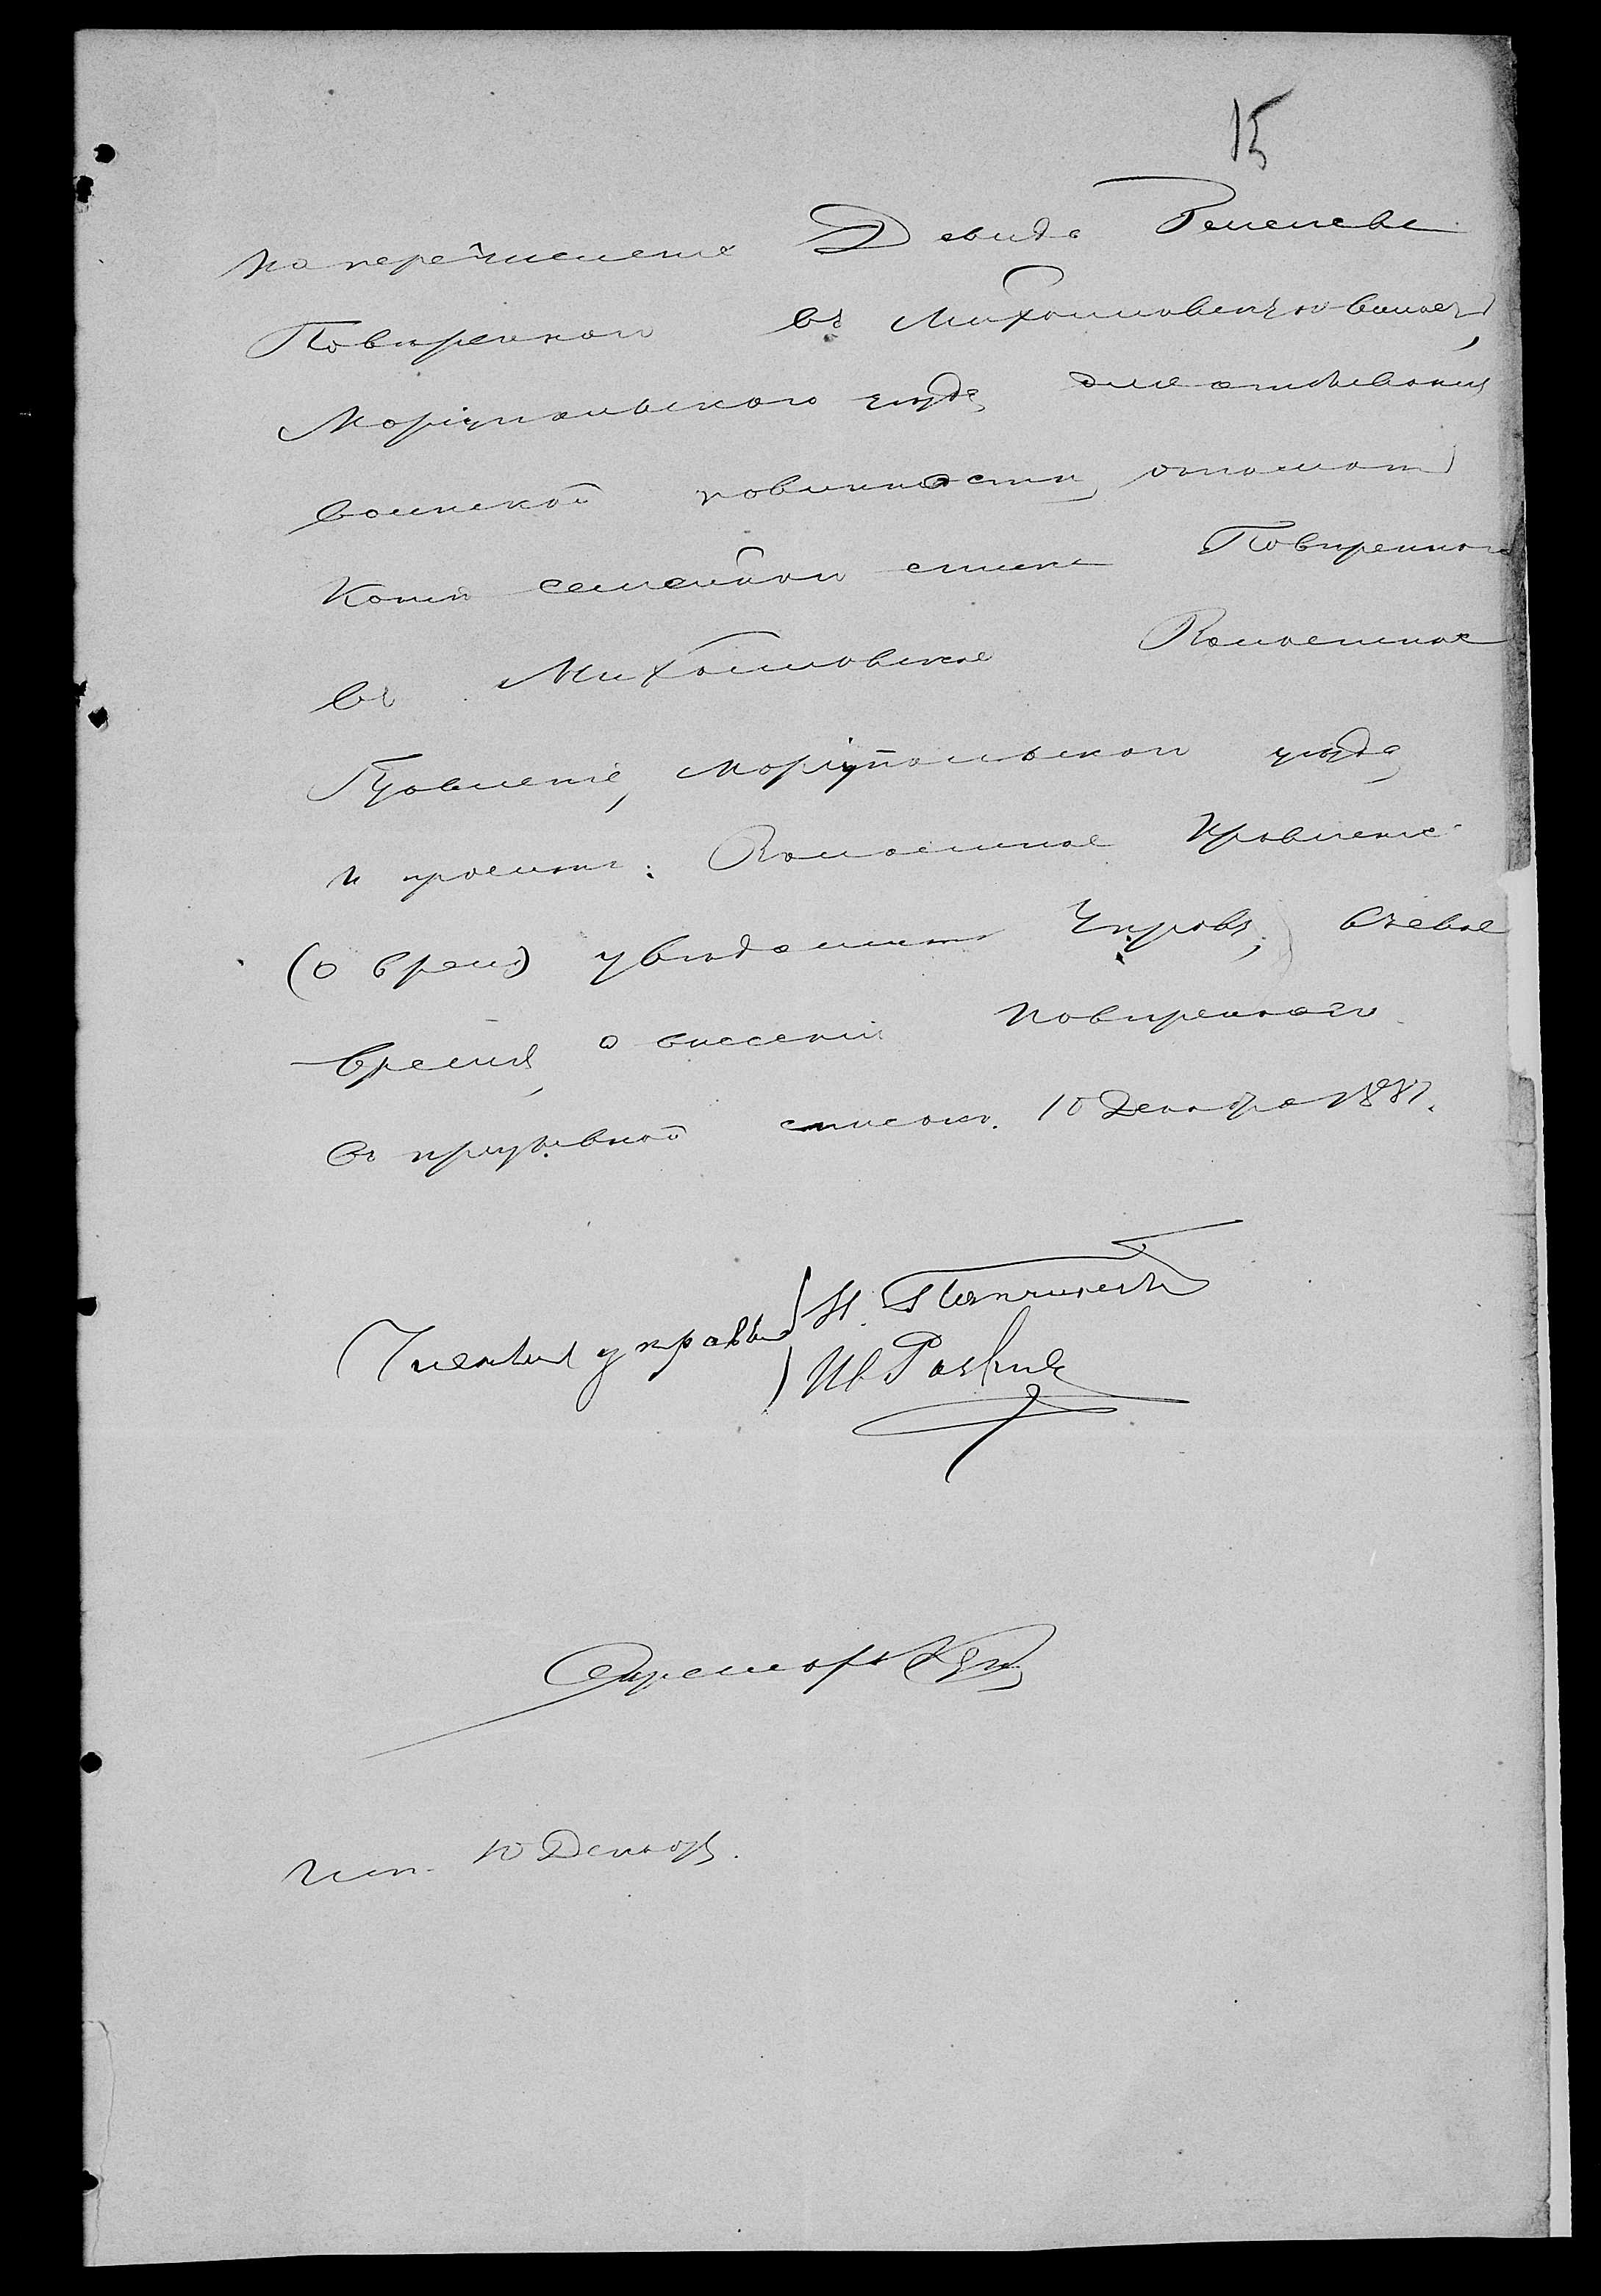 15
на перечисленіе Давида
Повиреннаго въ Михайловскую волость,
Маріупольскаго уѣзда, для отбыванія
воинской повинности, отослать
копію семейнаго списка Повиреннаго
въ Михайловское Волостное
Правленіе, Маріупольскаго уѣзда,
и просить: Волостное Правленіе
(о врем) увѣдомить Управу, въ свое
время, о внесеніи Повиреннаго
въ призывной списокъ. 10 Декабря 1887.
Члены управы Н.
Ив.
Секретарь
исп. 10 Декабр.